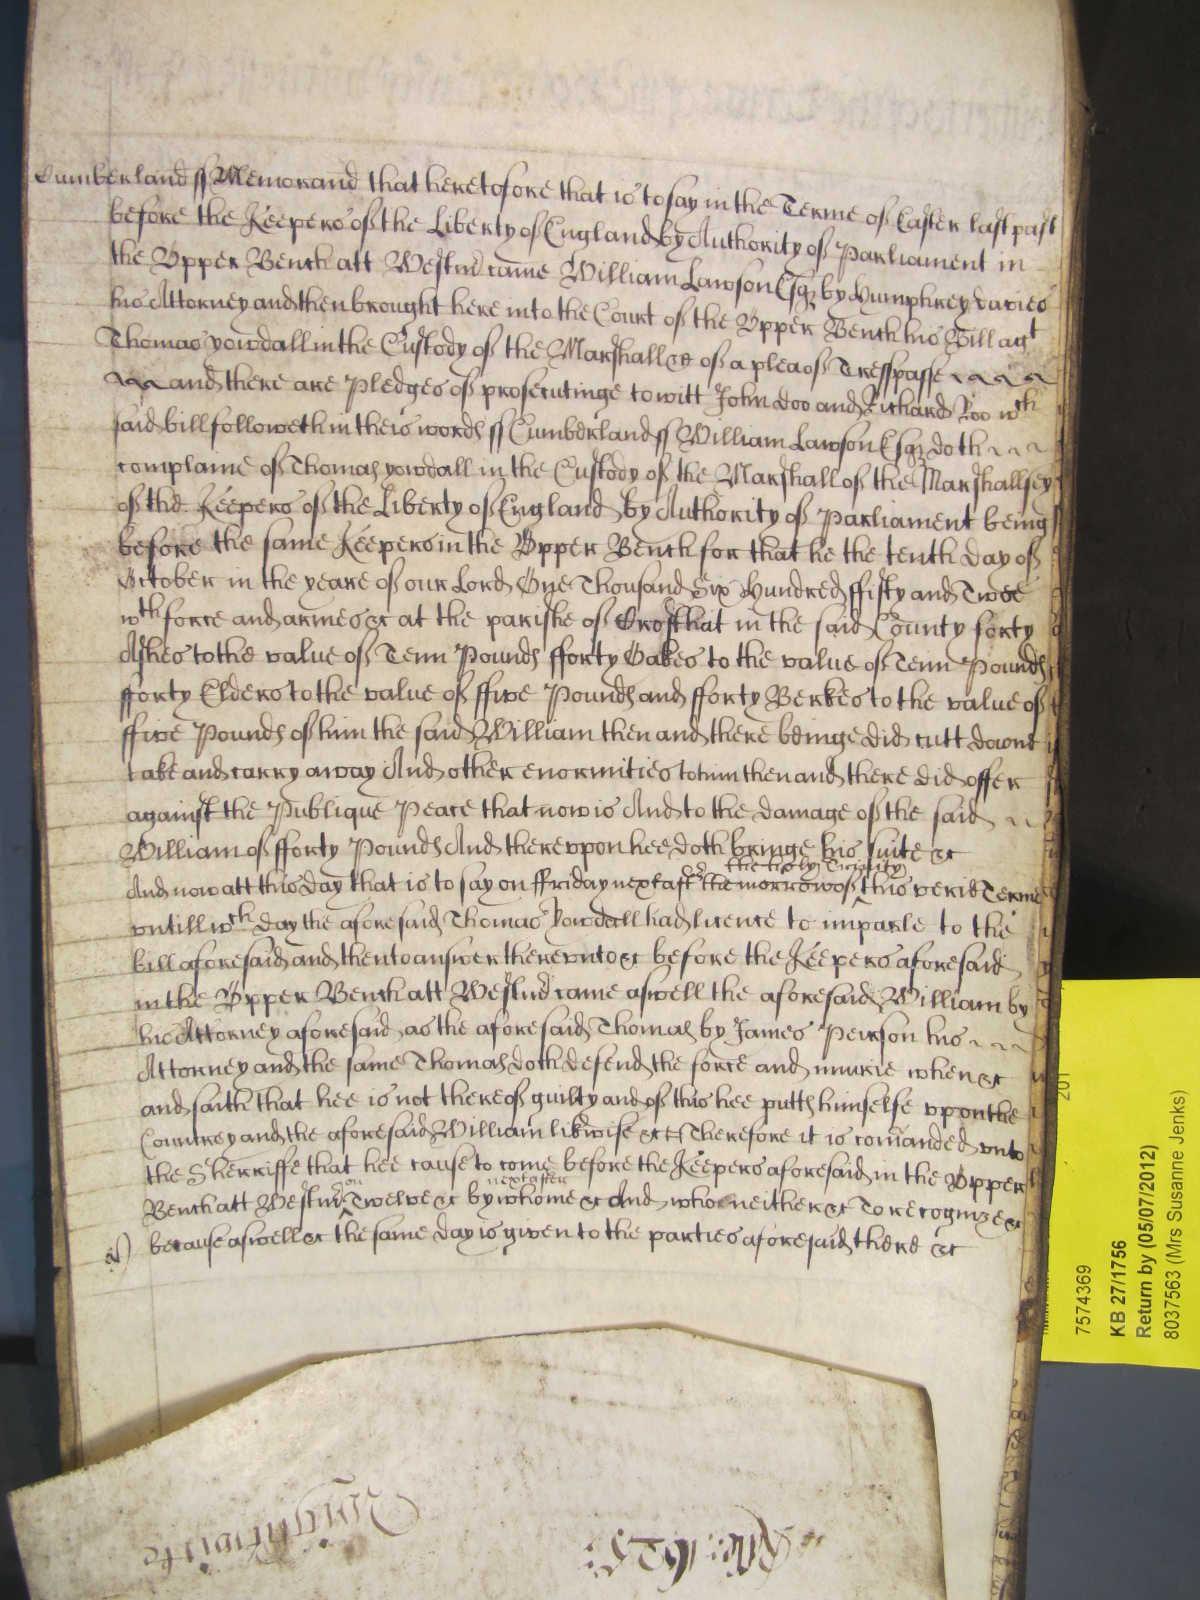 Cumberland ss Memorand that heretofore that is to say in the Terme of Easter last past
before the Keepers of the Liberty of England by Authority of Parliament in
the Vpper Bench att Westm̃ came William Lawson Esqʒ by Humphrey Davies
his Attorney and then brought here into the Court of the Vpper Bench his Bill agt
Thomas yowdall in the Custody of the Marshall &c of a plea of Tresspasse
and there are Pledges of prosecutinge to witt John Doo and Richard Roo wch
said bill followeth in theis words ss Cumberland ss William Lawson Esqʒ doth
complaine of Thomas yowdall in the Custody of the Marshall of the Marshallsey
of the Keepers of the Liberty of England by Authority of Parliament being
before the same Keepers in the Vpper Bench for that he the tenth day of
October in the yeare of our Lord One Thousand Six Hundred ffifty and Twoe
wth force and armes &c at the parishe of Crosthat in the said County forty
Ashes to the value of Tenn Pounds fforty Oakes to the value of Tenn Pounds
fforty Elders to the value of ffive Pounds and fforty Berkes to the value of
ffive Pounds of him the said William then and there beinge did cutt downe
take and carry away And other enormities to him then and there did offer
against the Publique Peace that now is And to the damage of the said
William of fforty Pounds And therevpon hee doth bringe his suite &c
the holy Trinity
And now att this day that is to say on ffriday next aft the morrow of this verie Terme
vntill wch day the aforesaid Thomas Yowdall had licence to imparle to the
bill aforesaid and then to answer therevnto &c before the Keepers aforesaid
in the Vpper Bench att Westm̃ came aswell the aforesaid William by
his Attorney aforesaid as the aforesaid Thomas by James Peirson his
Attorney and the same Thomas doth defend the force and iniurie when &c
and saith that hee is not thereof guilty and of this hee putts himselfe vpon the
Countrey and the aforesaid William likwise &c Therefore it is com̃anded vnto
the Sherriffe that hee cause to come before the Keepers aforesaid in the Vpper
on next after
Bench att Westm̃ Twelve &c by whome &c And who neither &c To recognize &c
because aswell &c the same day is given to the parties aforesaid there &c
7574369
KB 27/1756
Return by (05/07/2012)
8037563 (Mrs Susanne Jenks)
201